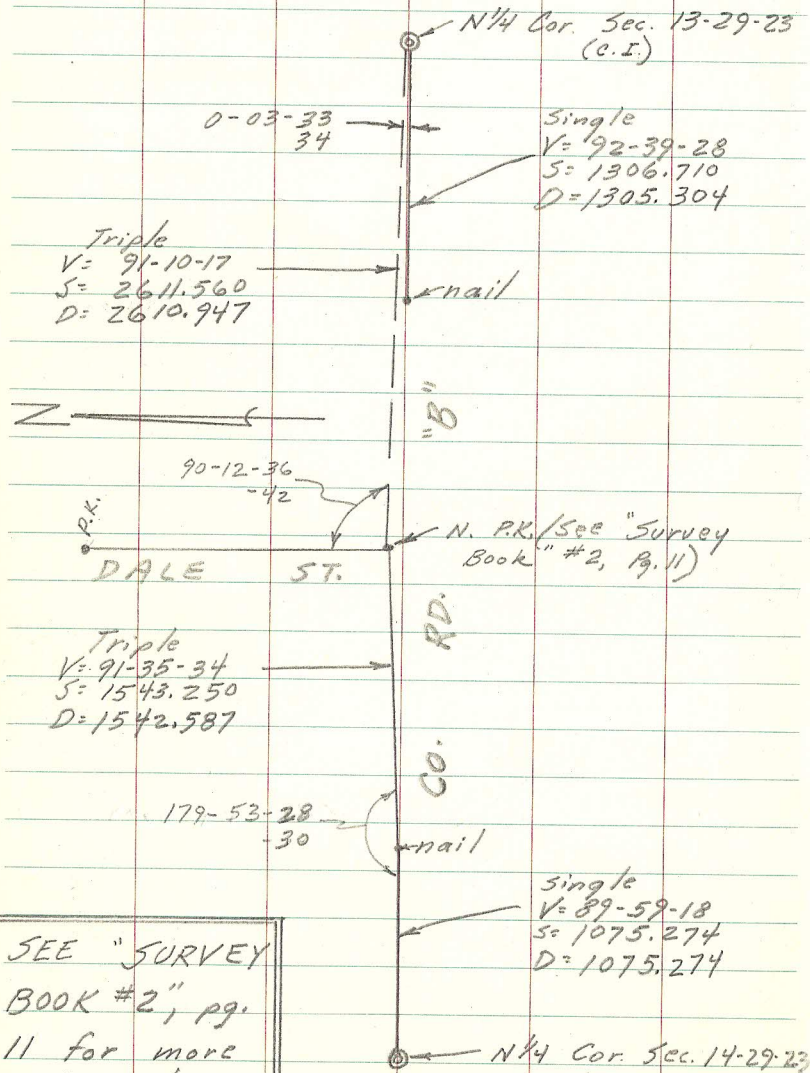 N¼ Cor. Sec. 13-29-23
(C.I.)
0-03-33
34
Single
V= 92-39-28
S= 1306.710
D=1305.304
Triple
V= 91-10-17
S= 2611.560
D= 2610.947
nail
"B"
90-12-36
-42
P.K.
N. P.K. (See "Survey
Book" #2, Pg. 11)
DALE ST.
RD.
Triple
V= 91-35-34
S= 1543.250
D= 1542.587
CO.
179-53-28
-30
nail
Single
V= 89-59-18
S= 1075.274
D= 1075.274
SEE "SURVEY
BOOK #2", pg.
11 for more
N¼ Cor. Sec. 14-29-23